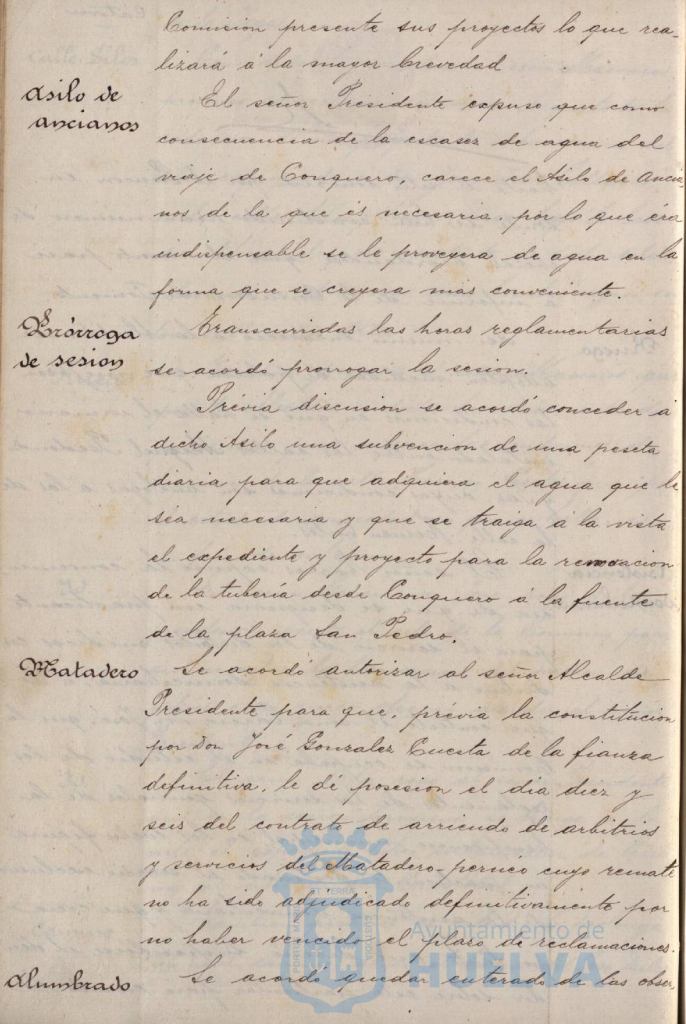 Comision presente sus proyectos lo que rea-
lizará á la mayor brevedad
Asilo de
ancianos
El señor Presidente expuso que como
consecuencia de la escasez de agua del
viaje de Conquero, carece el Asilo de Ancia-
nos de la que és necesaria, por lo que éra
indispensable se le proveyera de agua en la
forma que se creyera más conveniente.
Prórroga
de sesion
Transcurridas las horas reglamentarias
se acordó prorrogar la sesion.
Prévia discusion se acordó conceder á
dicho Asilo una subvencion de una peseta
diaria para que adquiera el agua que le
séa necesaria y que se traiga á la vista
el expediente y proyecto para la renovacion
de la tubería desde Conquero á la fuente
de la plaza San Pedro.
Matadero
Se acordó autorizar al señor Alcalde
Presidente para que, prévia la constitucion
por Don José Gonzalez Cuesta de la fianza
definitiva, le dé posesion el dia diez y
seis del contrato de arriendo de arbitrios
y servicios del Matadero-pernéo cuyo remate
no ha sido adjudicado definitivamente por
no haber vencido el plazo de reclamaciones.
Alumbrado
Se acordó quedar enterado de las obser-
Ayuntamiento de
HUELVA